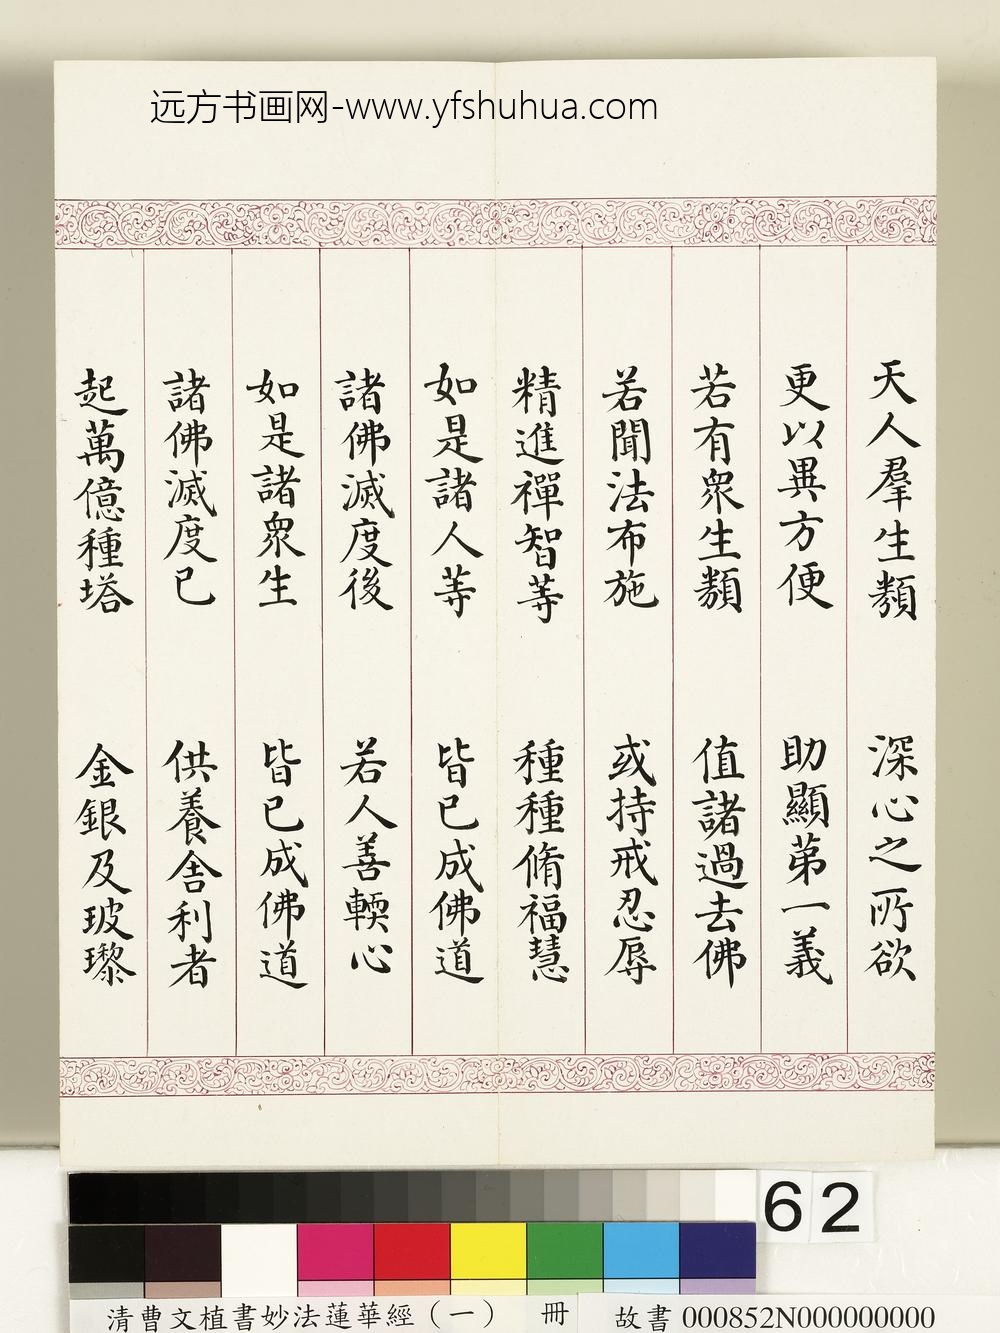 远方书画网-www.yfshuhua.com
天人羣生類 深心之所欲
更以異方便 助顯第一義
若有眾生類 值諸過去佛
若聞法布施 或持戒忍辱
精進禪智等 種種脩福慧
如是諸人等 皆已成佛道
諸佛滅度後 若人善輭心
如是諸眾生 皆已成佛道
諸佛滅度已 供養舍利者
起萬億種塔 金銀及玻瓈
62
清曹文植書妙法蓮華經（一） 冊 故書 000852N000000000